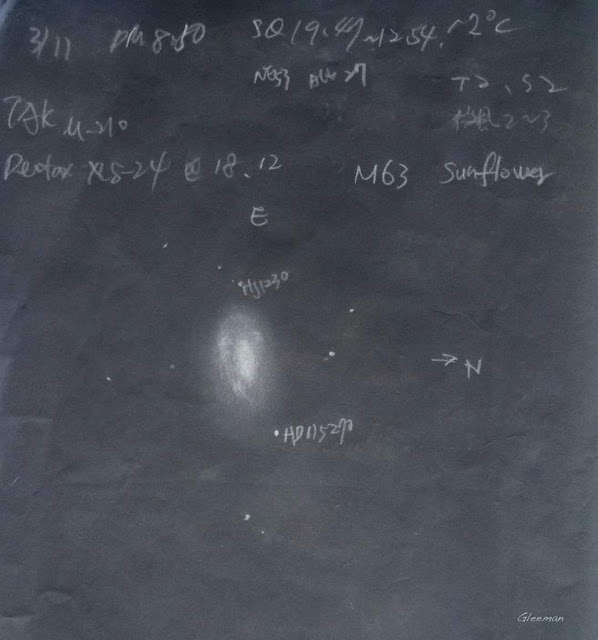 3/11 PM 8:50 SQ 19.47~12.54. ~2°C
NE53 Alt 27 T2, S2
TAK μ-210 2~3
Pentax XL8-24 @ 18.12 M63 Sunflower
E
HJ1230
→ N
HD115270
Gleeman